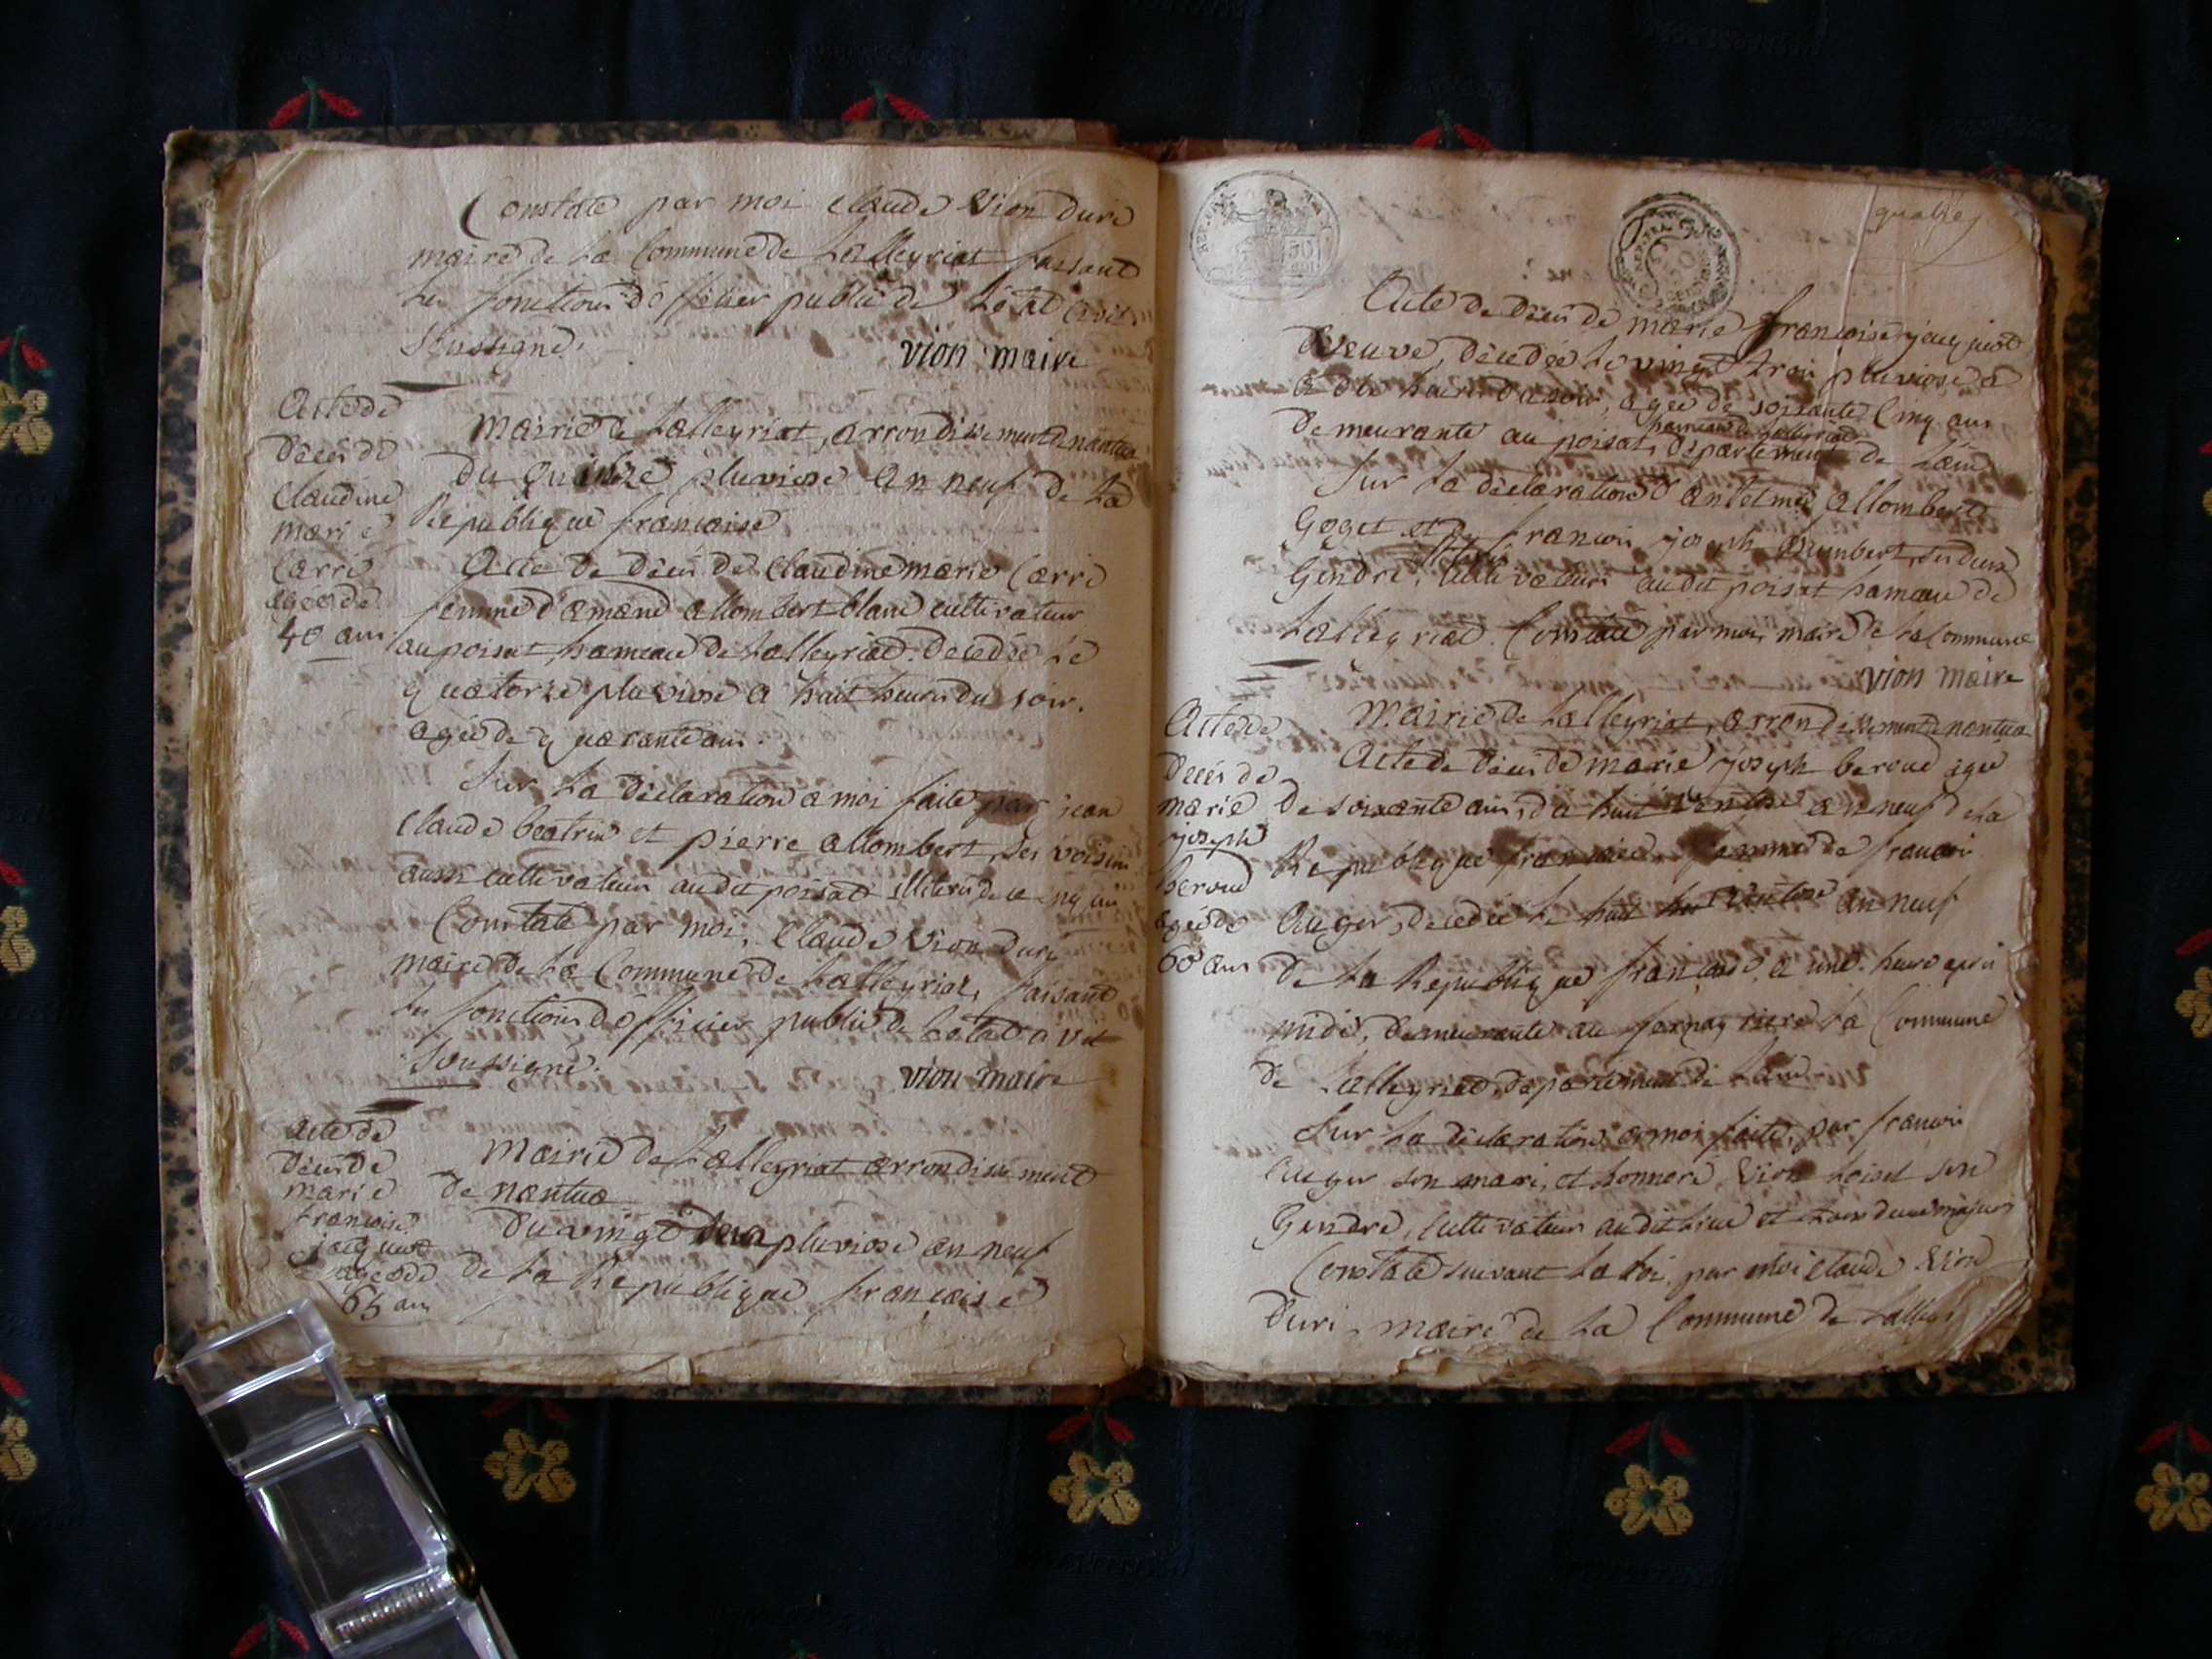 Constaté par moi Claude Vion duri
maire de La Commune de Lalleyriat faisant
Les fonctions d'officier public de L'état Civil
Soussigné.
vion maire
Acte de
décès de
Claudine
marie
Carri
agée de
40 ans
Mairie de Lalleyriat, arrondissement de nantua
du quinze pluviose an neuf de La
Republique francaise
Acte de décès de Claudine marie Carri
femme d'amand allombert blanc cultivateur
au poisat, hameau de Lalleyriat. decedée Le
quatorze pluviose a huit heures du soir.
agée de quarante ans.
Sur La déclaration a moi faite par jean
Claude beatrix et pierre allombert, ses voisins
aussi cultivateurs au dit poisat
Constaté par moi, Claude Vion duri
maire de La Commune de Lalleyriat, faisant
Les fonctions d'officier public de Létat
Soussigné.
vion maire
Acte de
décès de
marie
francoise
jacquiot
agée de
65 ans
Mairie de Lalleyriat arrondissement
de nantua
du vingt pluviose an neuf
de La Republique francaise
quatre
Acte de décès de marie francoise jacquiot
Veuve, decedée Le vingt trois pluviose a
heures du soir, agée de soixante Cinq ans
hameau de Lalleyriat
demeurante au poisat, département de L'ain
Sur La déclaration d'antelme allombert
Goget et francois joseph humbert, ses deux
Gendre, Cultivateurs au dit poisat hameau de
Lalleyriat. Constaté par moi, maire de La Commune
vion maire
Acte de
décès de
marie
joseph
beroud
agée de
60 ans
Mairie de Lalleyriat, arrondissement de nantua
Acte de décès de marie joseph beroud agée
de soixante ans, du huit Ventose an neuf de La
Republique francaise, femme de francois
Auger, decedée Le huit Ventose an neuf
de La Republique francaise a une heure après
midi, demeurante au La Commune
de Lalleyriat, département de L'ain
Sur La déclaration a moi faite, par francois
Auger son mari, et honnoré Vion Loisel son
Gendre, Cultivateurs au dit Lieu et tous deux majeurs
Constaté suivant La Loi, par moi Claude Vion
duri, maire de La Commune de